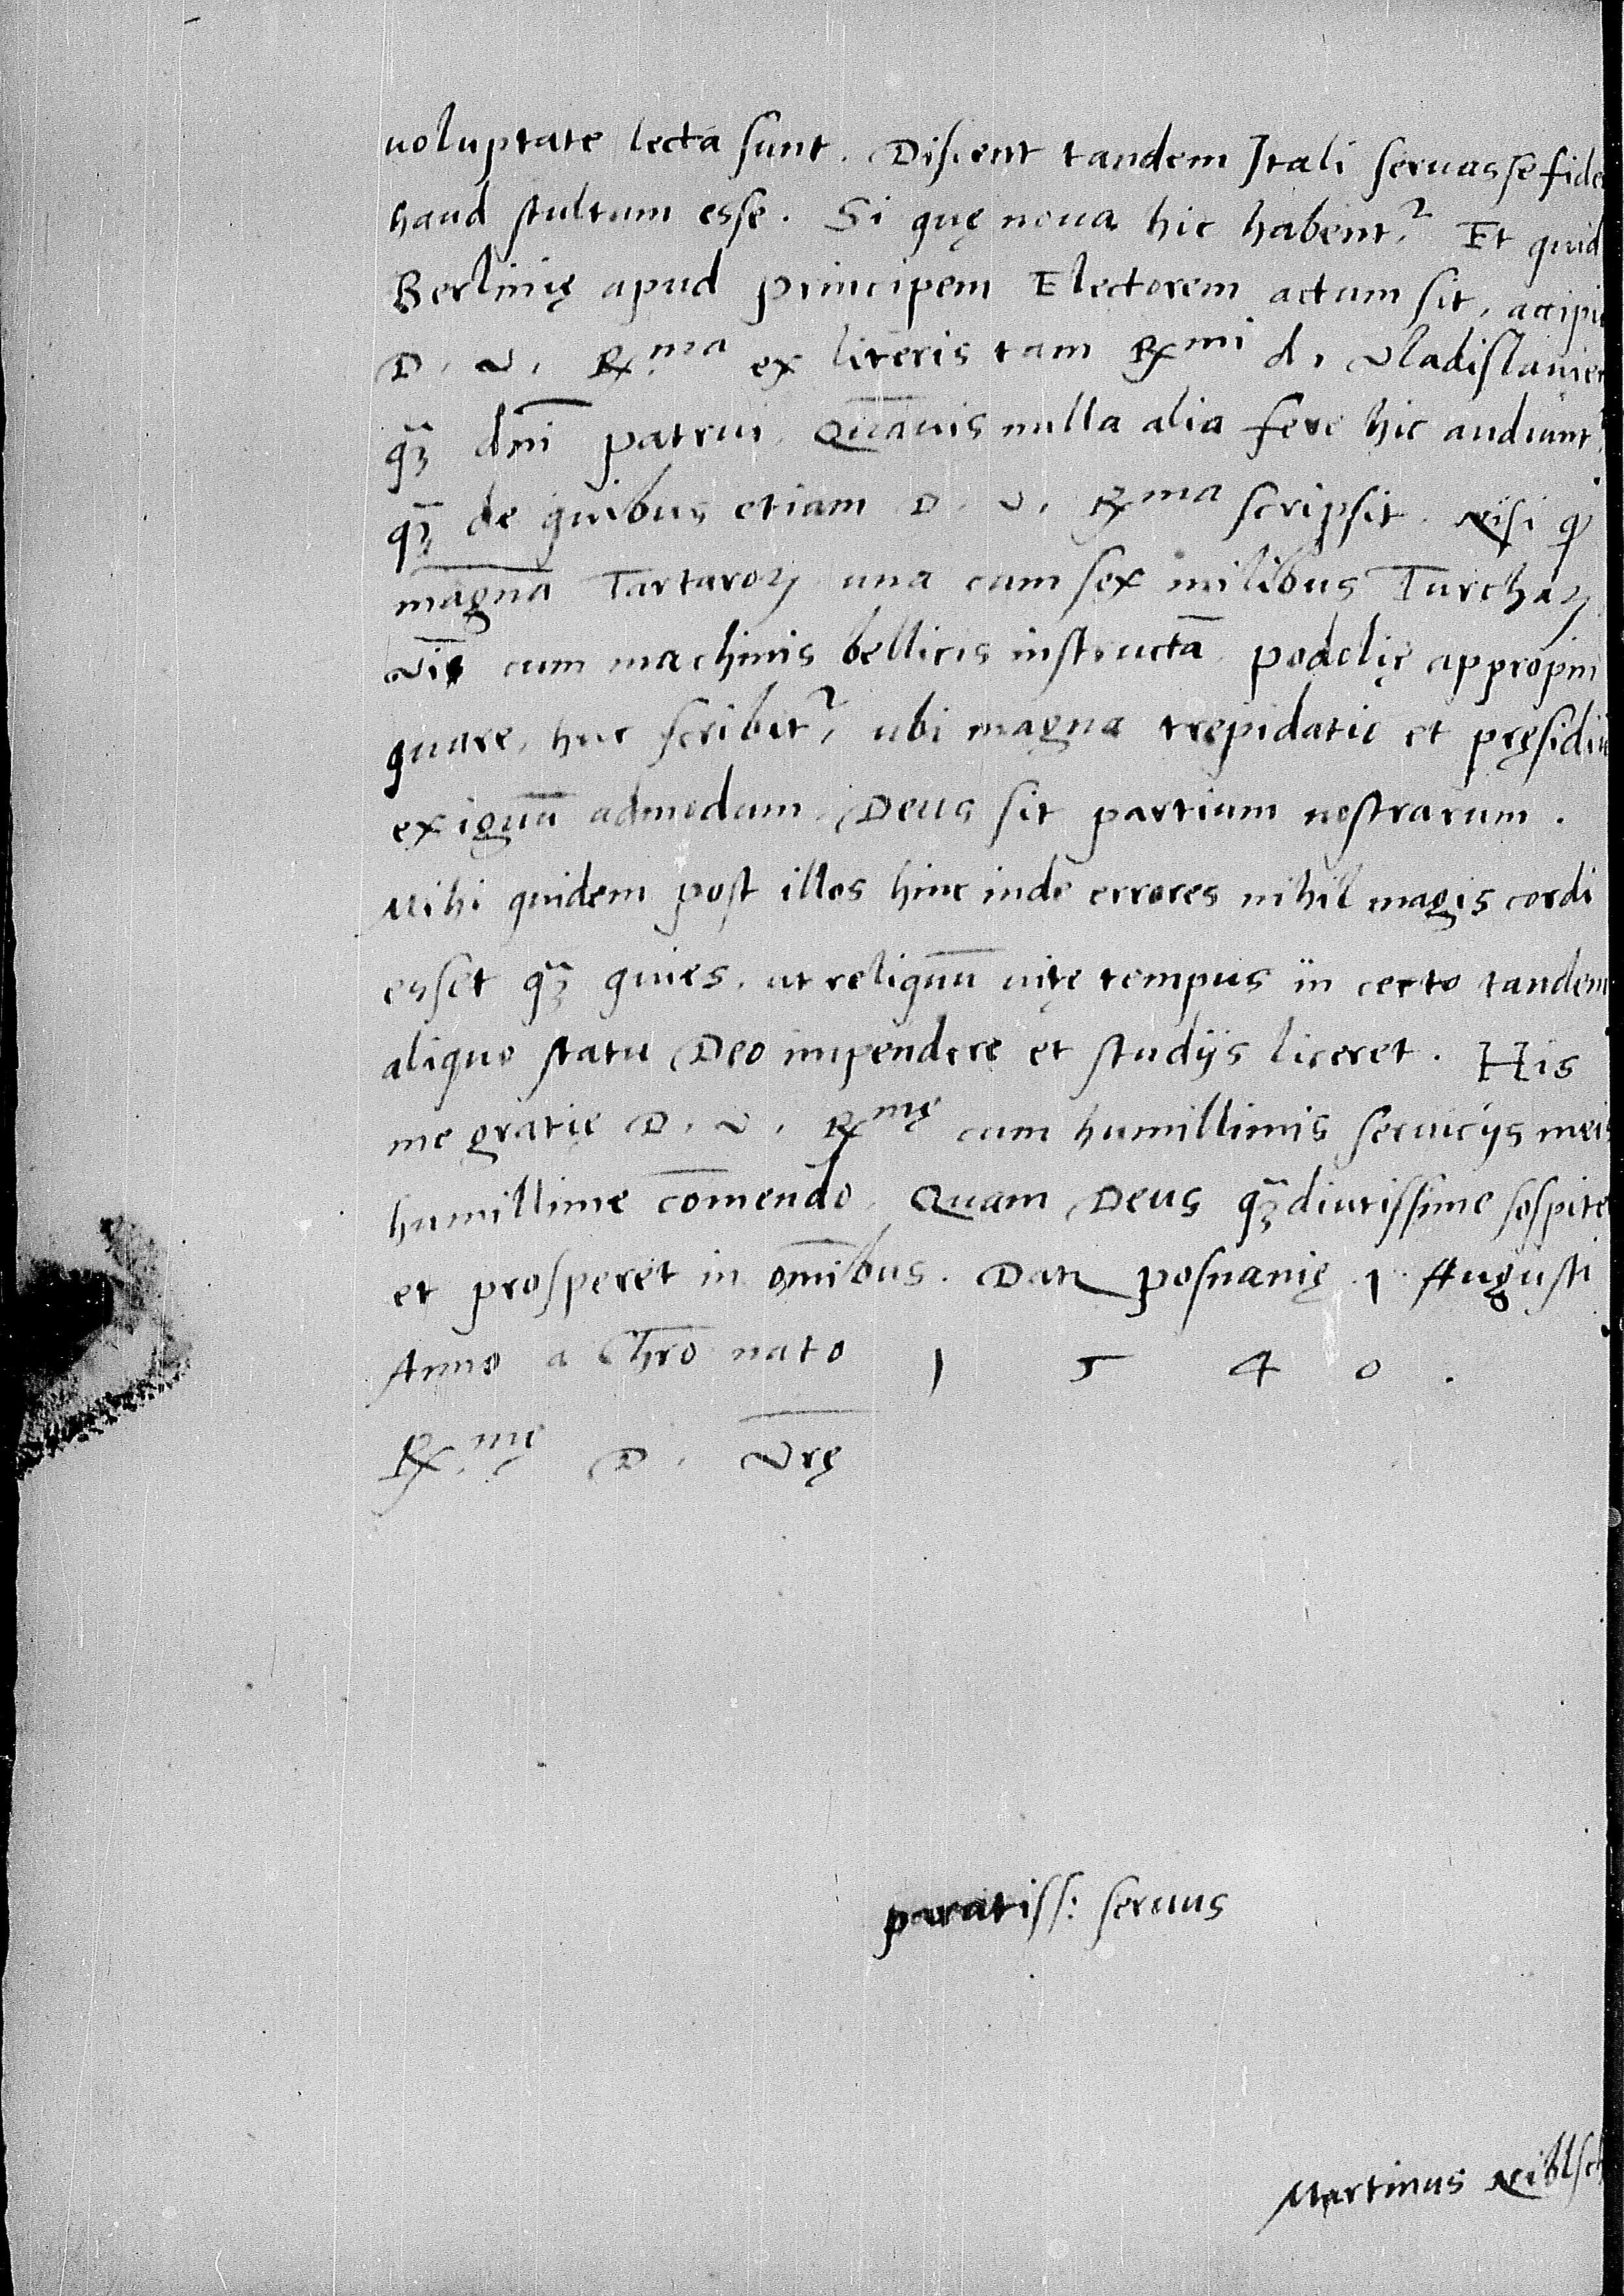 uoluptate lecta sunt. Discent tandem Itali seruasse fide
haud stultum esse. Si quę noua hic habent᷑, Et quid
Berlinię apud principem Electorem actum sit, accipi
D. V. Rx.ma ex literis tam Rxmi d. Vladislauien
qꝫ̃ dn̄i patrui. Quāuis nulla alia fere hic audiunt᷑
qꝫ̃ de quibus etiam D. V. Rxma scripsit. Nisi ꝙ
magnā Tartaroꝝ una cum sex milibus Turchaꝝ
Vim cum machinis bellicis instructā Podolię appropin
quare, huc scribit᷑, ubi magna trepidatio et pręsidiū
exiguū admodum. Deus sit partium nostrarum.
Mihi quidem post illos hinc inde errores nihil magis cordi
esset qꝫ̃ quies, ut reliquū uitę tempus in certo tandem
aliquo statu Deo impendere et studijs liceret. His
me gratię D. V. Rxmę cum humillimis seruicijs meis
humillime cōmendo. Quam Deus qꝫ̃diutissime sospite
et prosperet in om̄ibus. Dat Posnanię 1 Augusti
Anno a Chr̄o nato 1 5 4 0.
Rx.mę D. Vr̄ę
paratiss: seruus
Martinus